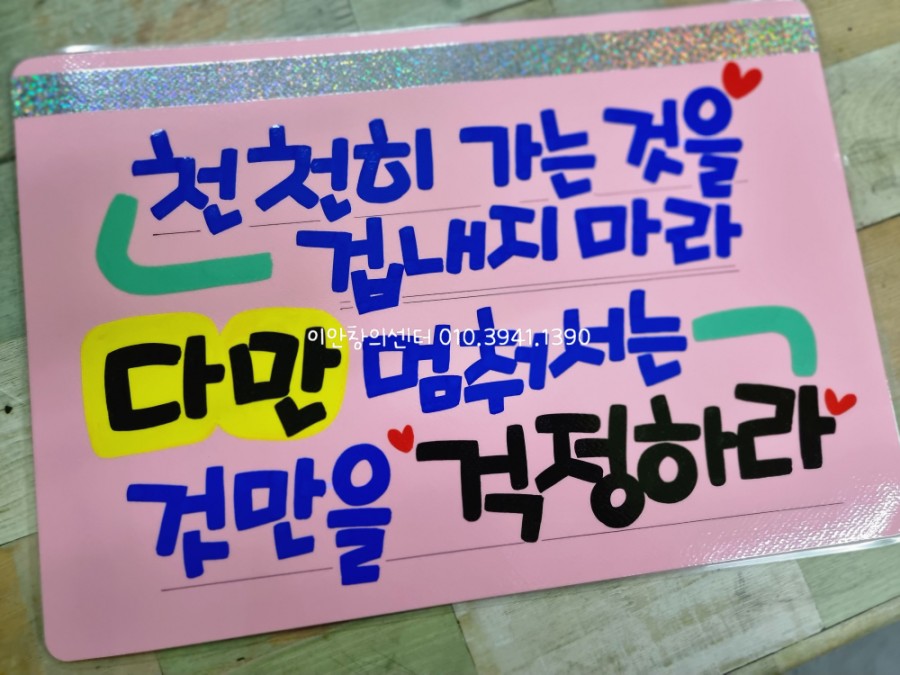 천천히 가는 것을
겁내지 마라
이안창의센터 010.3941.1390
다만 멈춰서는
것만을 걱정하라